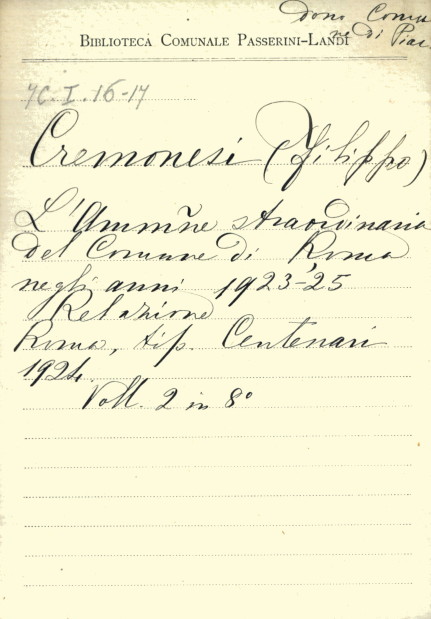 dono Comu
ne di Piac.
BIBLIOTECA COMUNALE PASSERINI-LANDI
7C.I.16-17
Cremonesi (Filippo)
L'Ammne straordinaria
del Comune di Roma
negli anni 1923-25
Relazione
Roma, tip. Centenari
1924.
Voll. 2 in 8°